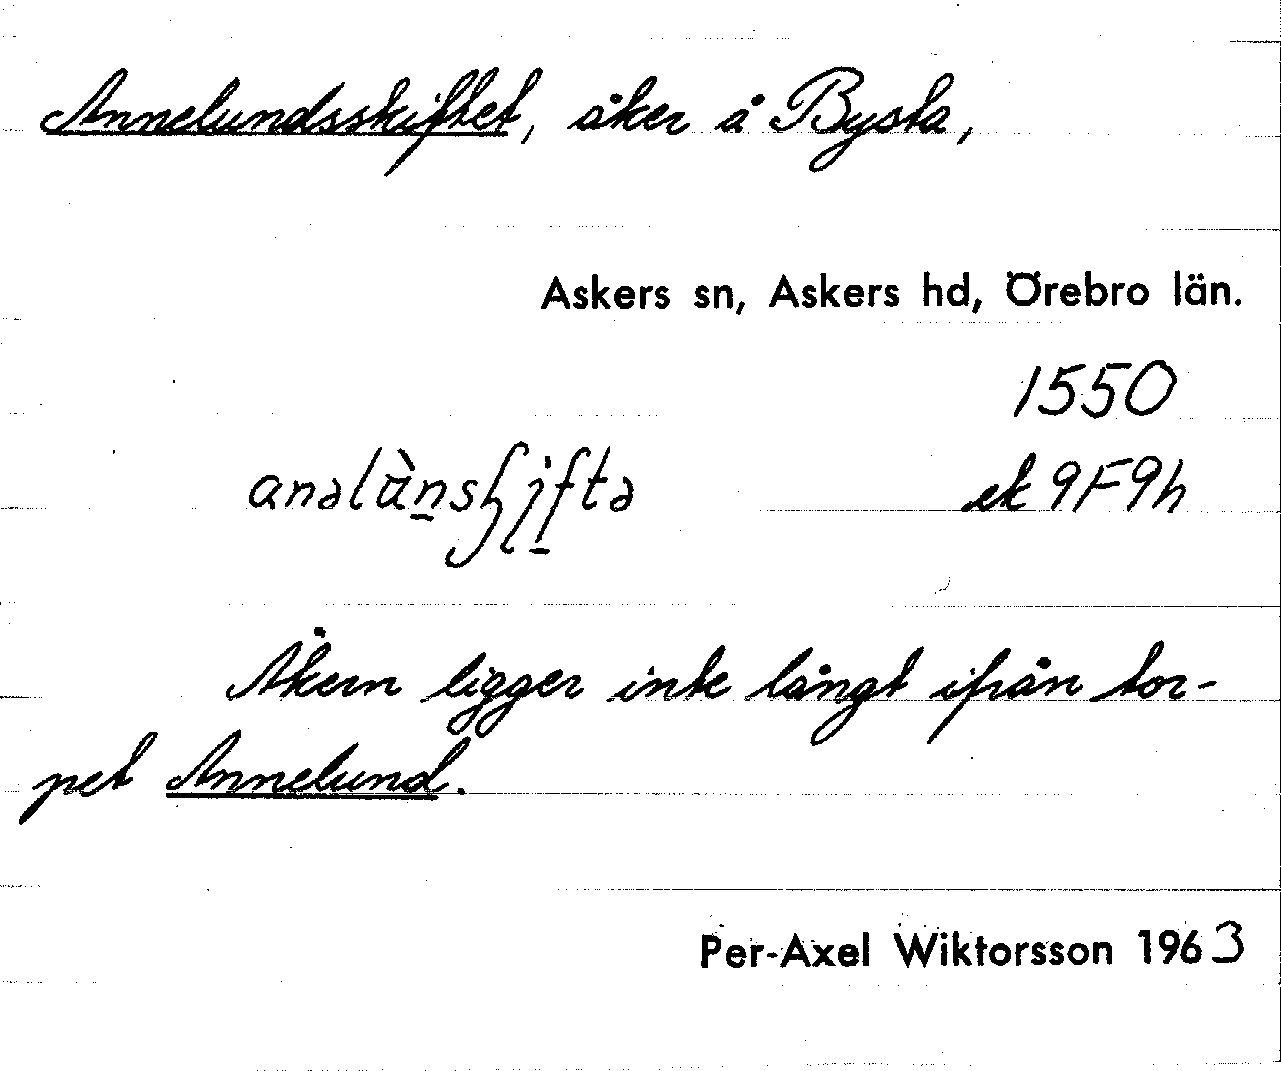 Annelundsskiftet, åker å Bysta,
Askers sn, Askers hd, Örebro län.
1550
ek 9F9h
Åkern ligger inte långt ifrån tor-
pet Annelund.
Per-Axel Wiktorsson 1963